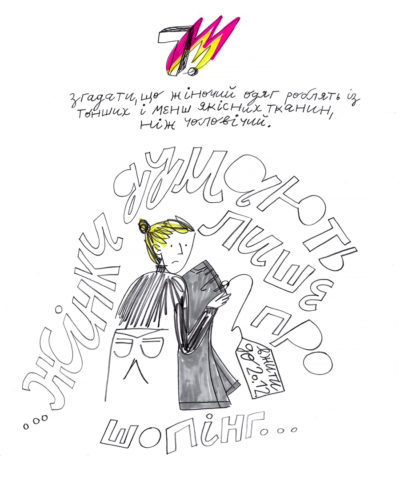 7.
згадати, що жіночий одяг роблять із
тонших і менш якісних тканин,
ніж чоловічий.
...жінки думають
лише
про
шопінг...
вжити
до 20.12